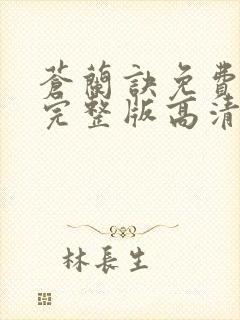 蒼蘭訣免費
完整版高清
林長生